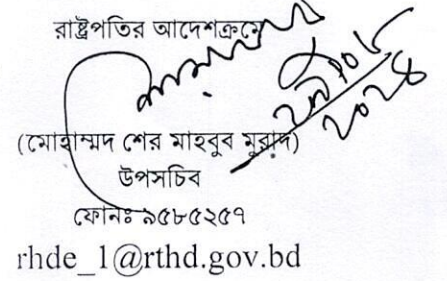 রাষ্ট্রপতির আদেশক্রমে
(মোহাম্মদ শের মাহবুব মুরাদ)
উপসচিব
ফোনঃ ৯৫৮৫২৫৭
rhde_1@rthd.gov.bd